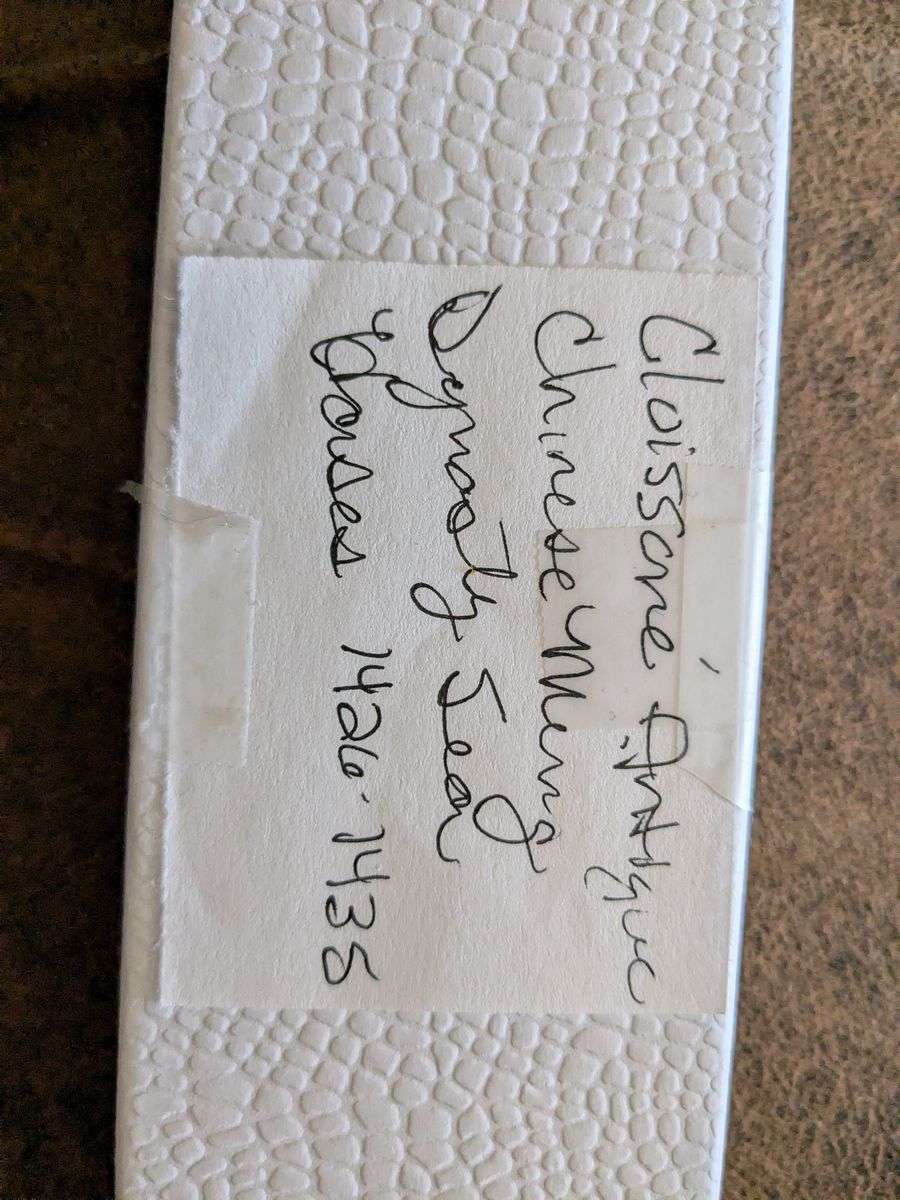 Cloissone Antique
Chinese "Ming
Dynasty Sea
Horses 1426-1435